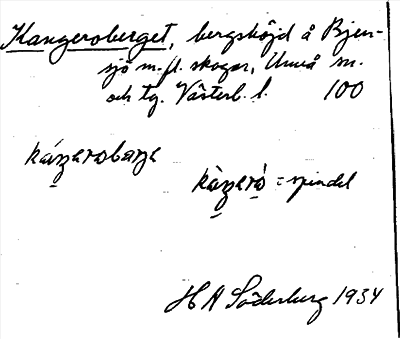 Kangeroberget, bergshöjd å Bjen-
sjö m. fl. skogar, Umeå sn.
och tg. Västerb. l. 100
káŋerobarge
kàŋerò = spindel
H A Söderberg 1934